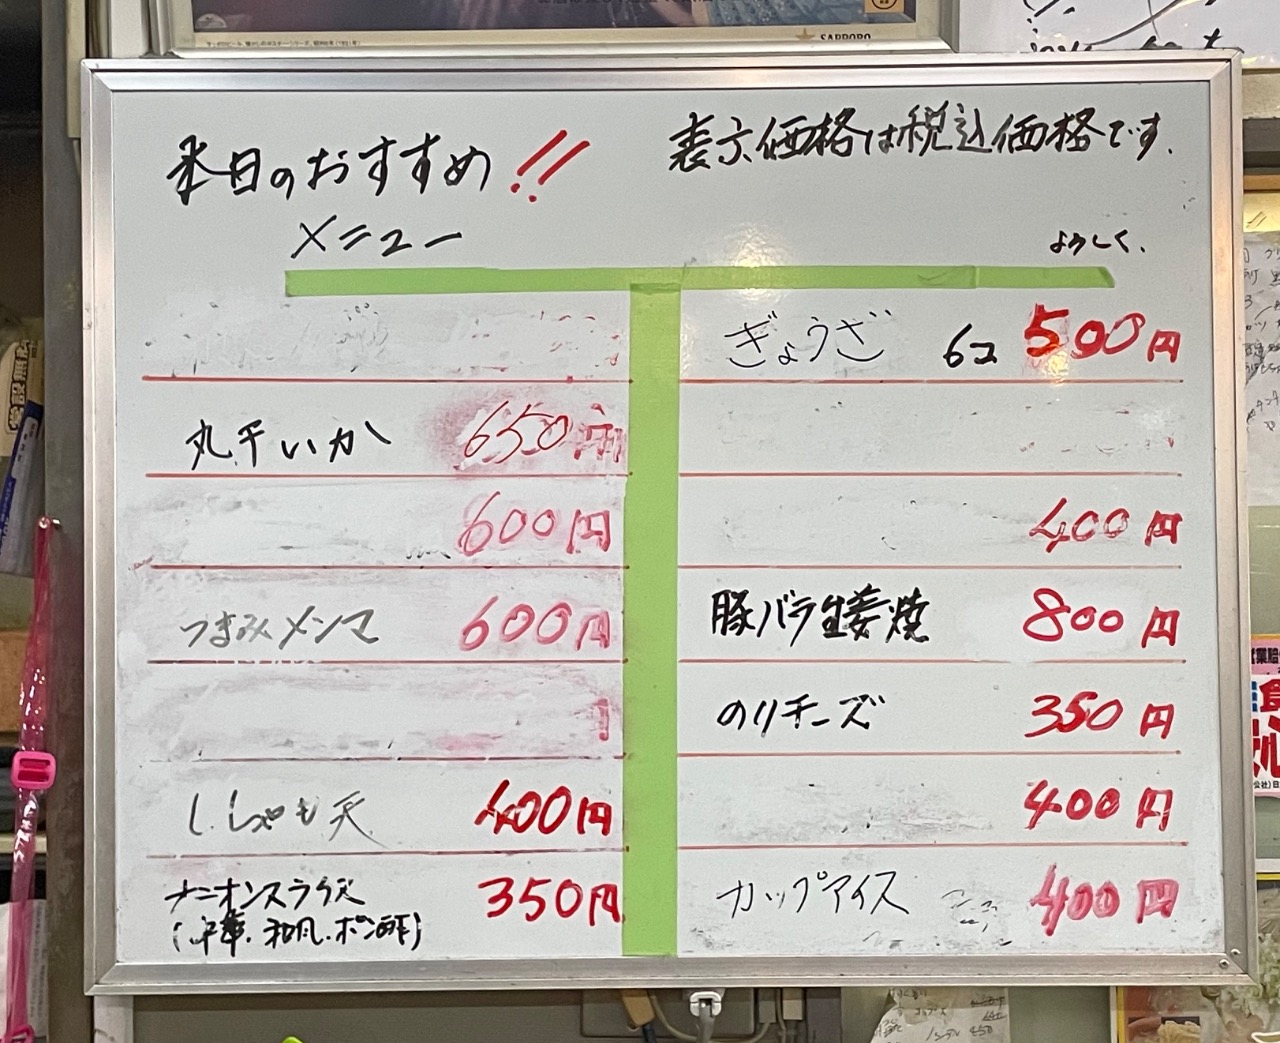 SAPPORO
本日のおすすめ!!
メニュー
表示価格は税込価格です.
よろしく.
丸干いか 650円
600円
つまみメンマ 600円
ししゃも天 400円
オニオンスライス 350円
(中華.和風.ポン酢)
ぎょうざ 6コ 500円
400円
豚バラ生姜焼 800円
のりチーズ 350円
400円
カップアイス 400円